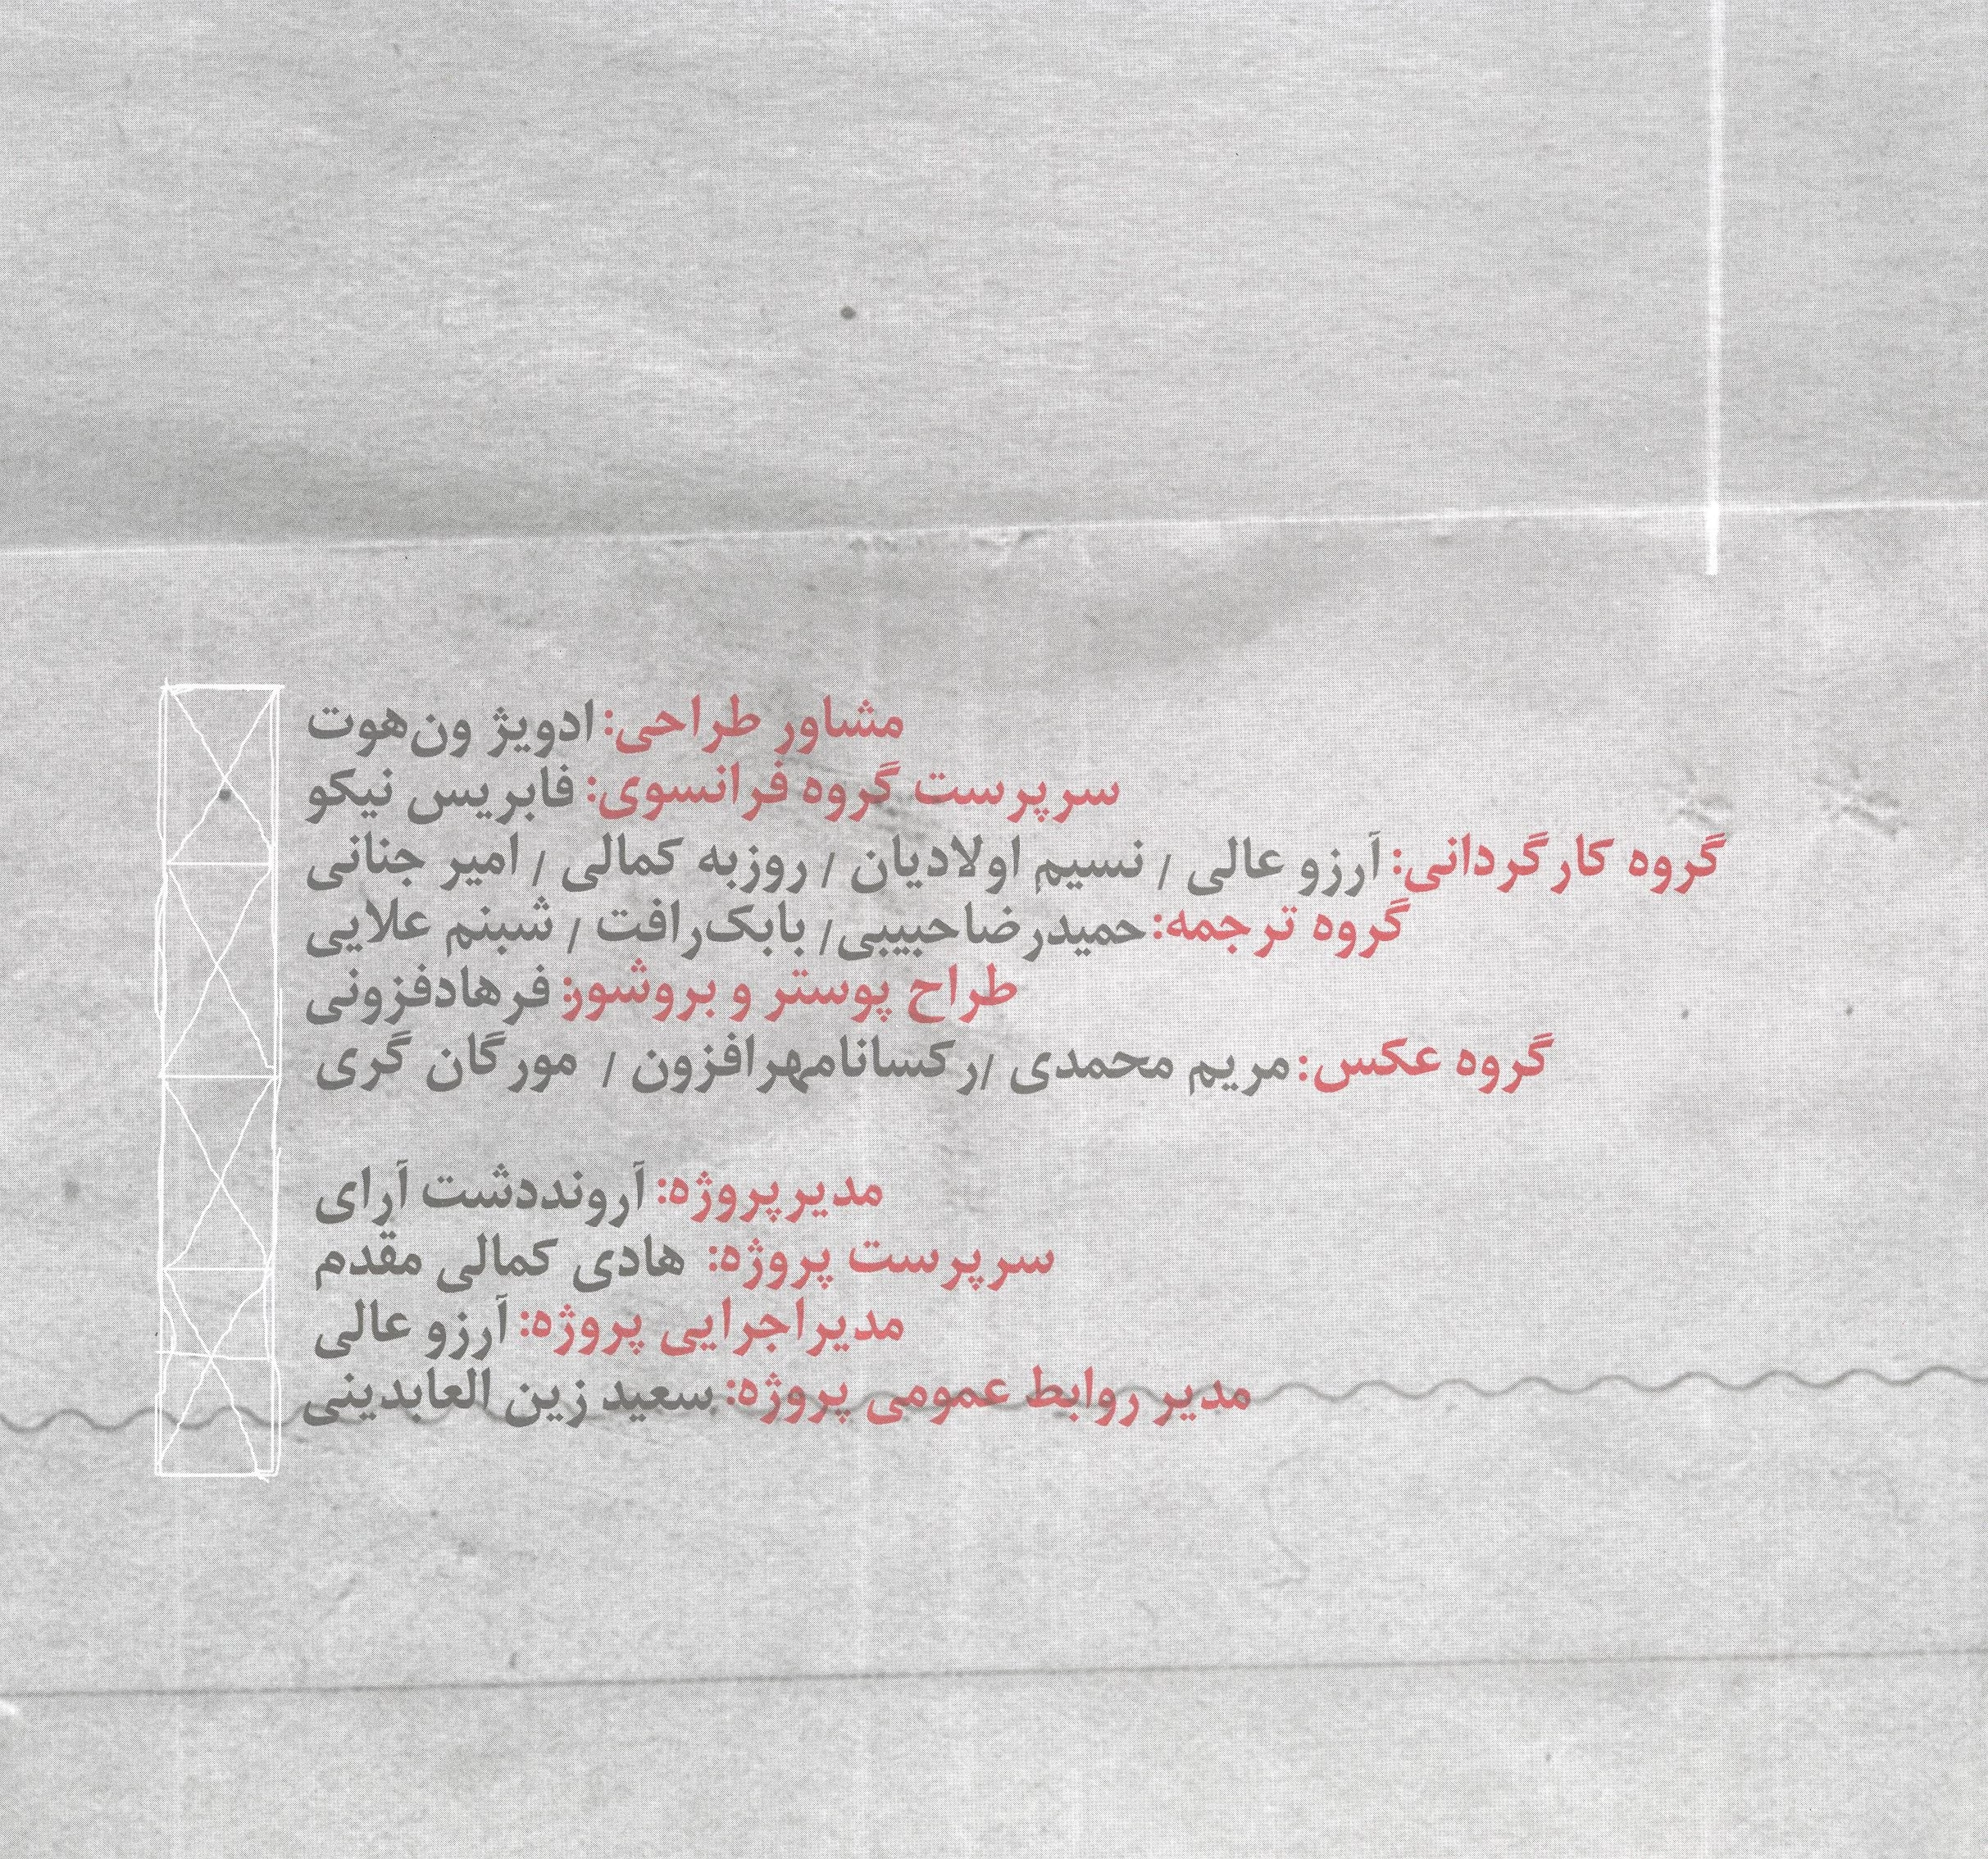 مشاور طراحی: ادویژ ون‌هوت
سرپرست گروه فرانسوی: فابریس نیکو
گروه کارگردانی: آرزو عالی / نسیم اولادیان / روزبه کمالی / امیر جنانی
گروه ترجمه: حمیدرضاحبیبی/ بابک‌رافت / شبنم علایی
طراح پوستر و بروشور: فرهادفزونی
گروه عکس: مریم محمدی /رکسانامهرافزون / مورگان گری
مدیرپروژه: آرونددشت آرای
سرپرست پروژه: هادی کمالی مقدم
مدیراجرایی پروژه: آرزو عالی
مدیر روابط عمومی پروژه: سعید زین العابدینی